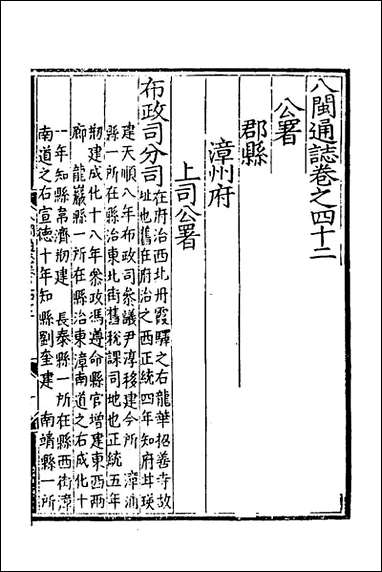 八閩通誌卷之四十二
公署
郡縣
漳州府
上司公署
布政司分司在府治西北丹霞驛之右龍華招善寺故
址也舊在府治之西正統四年知府甘瑛
建天順八年布政司參議尹淳移建今所 漳浦
縣一所在縣治東北街舊稅課司地也正統五年
刱建成化十八年參政馮遵命縣官增建東西兩
廊 龍巖縣一所在縣治東漳南道之右成化十
一年知縣
濟刱建 長泰縣一所在縣西街漳
南道之右宣德十年知縣劉奎建 南靖縣一所